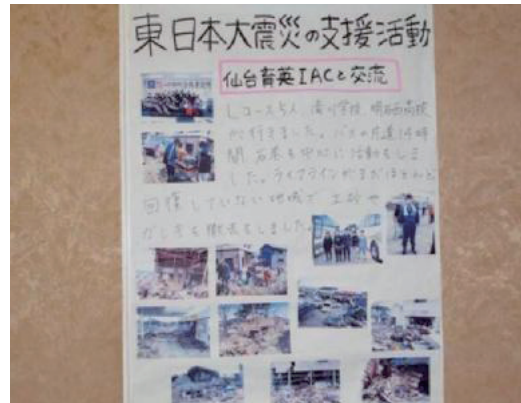 東日本大震災の支援活動
仙台育英IACと交流
Lコース5人 滝川学校 明石西高校
が行きました。バスの片道14時
間 石巻を中心に活動をしま
した。ライフラインがまだほとんど
回復していない地域で 土砂や
がレきを撤去をしました。